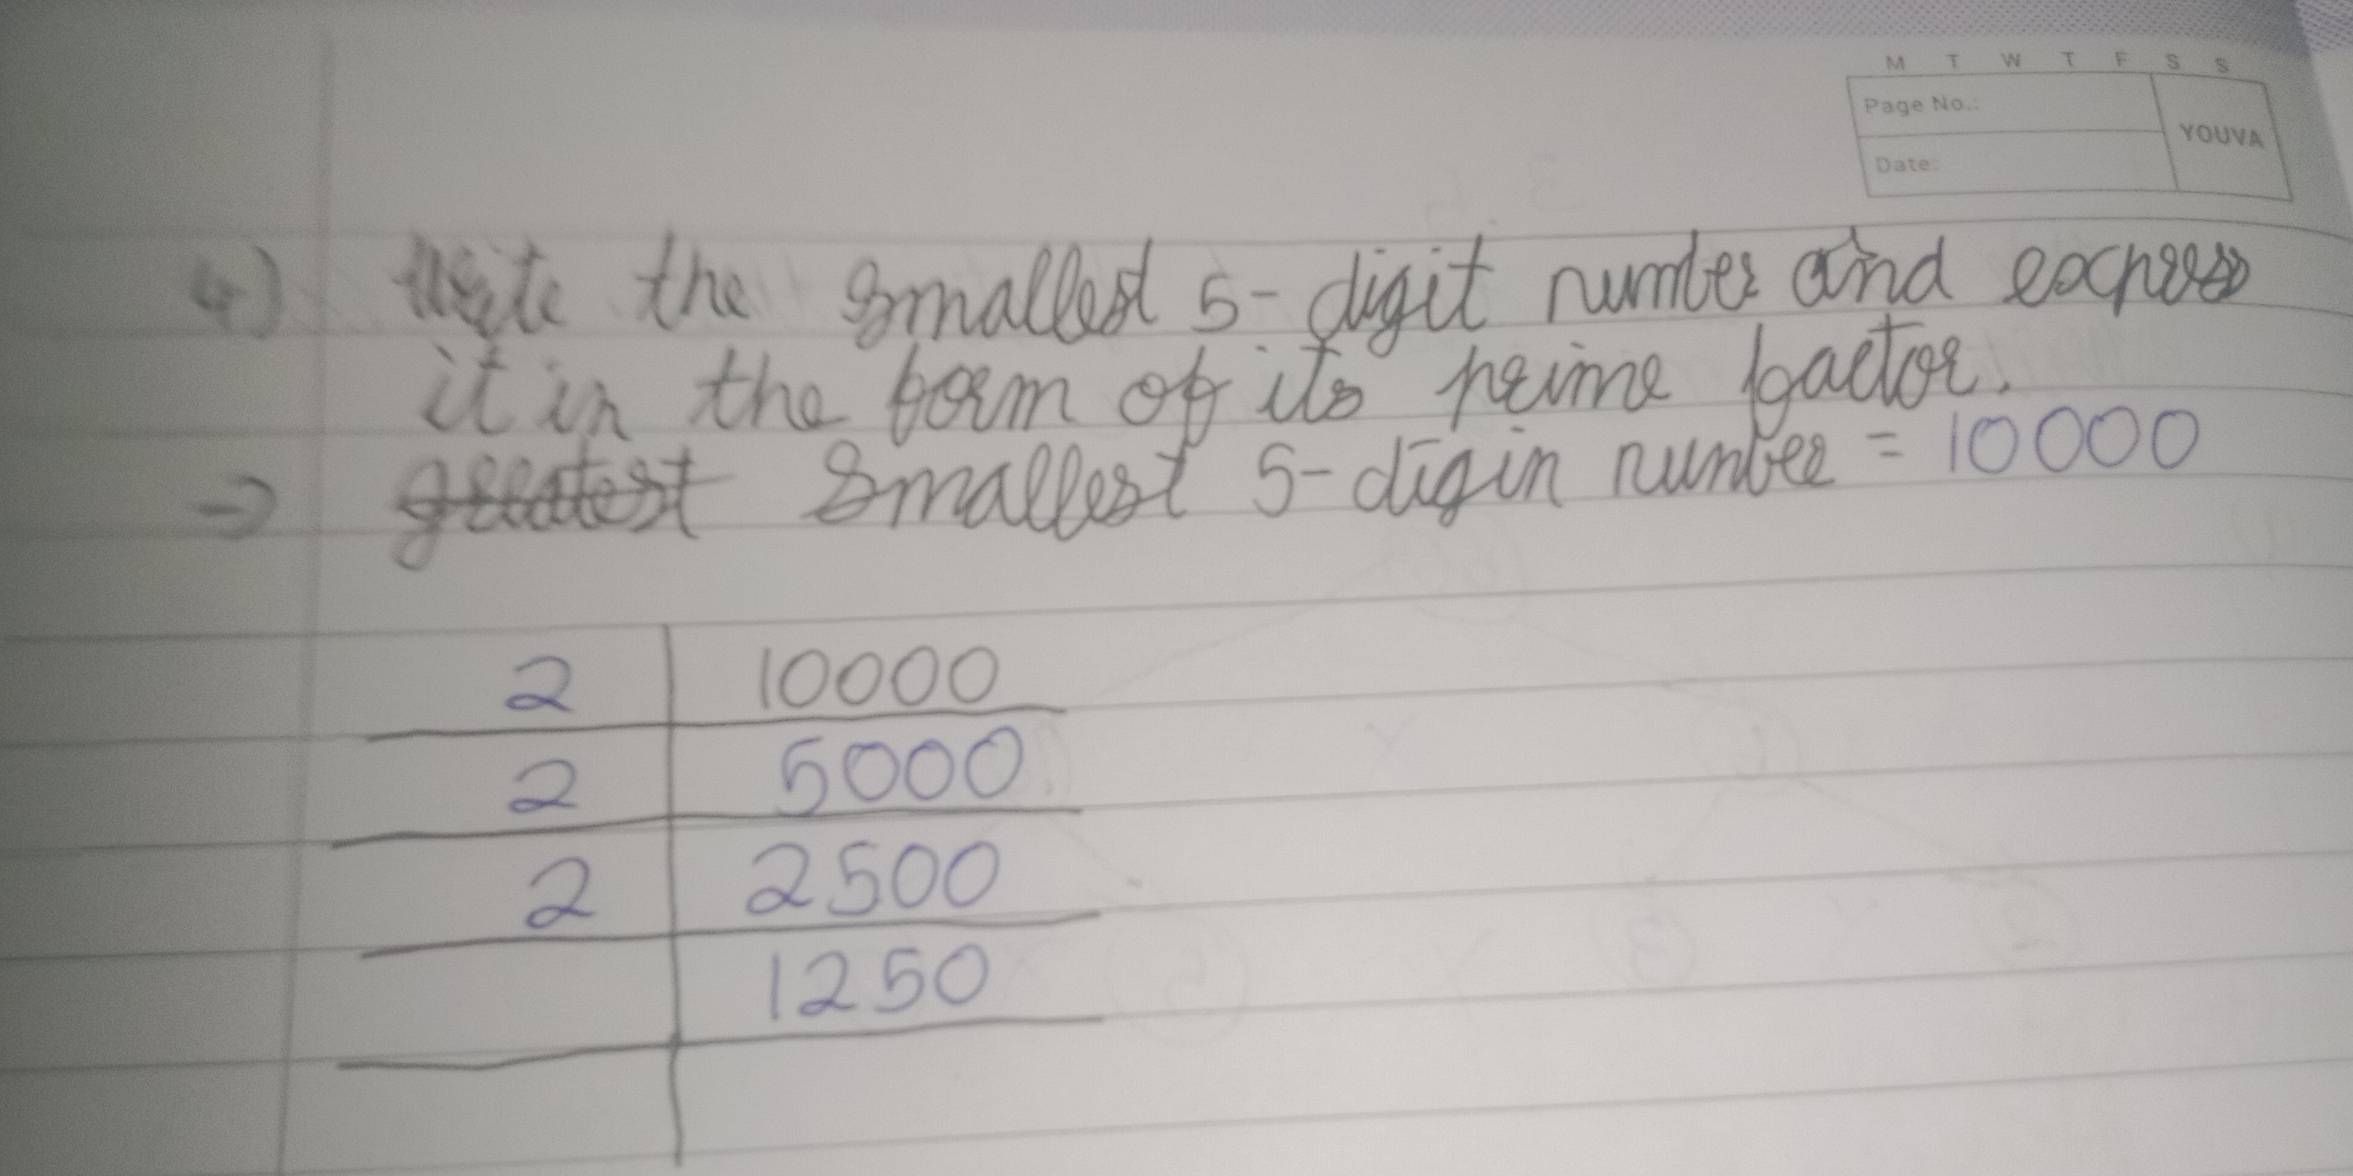 M T W T F S S
Page No.:
YOUVA
Date:
4) Write the smallest 5-digit number and express
it in the form of its prime factor.
→ greatest Smallest 5-digin number = 10000
2 10000
2 5000
2 2500
1250